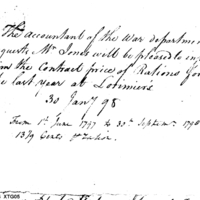 The accountant of the War departmen
quests Mr Jones will be pleased to in
the contract price of Rations for
last year at Lorimiers
30 Jany 98
From 1st June 1797 to 30th Septemr 1798
13 7/9 Cents pr Ration
XTG05